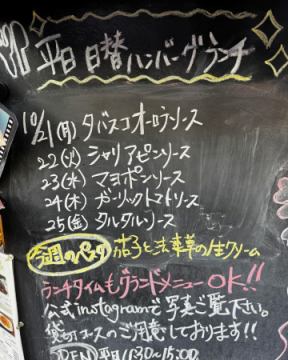 平日日替ハンバーグランチ
10/21(月) タバスコオーロラソース
22(火) シャリアピンソース
23(水) マヨポンソース
24(木) ガーリックトマトソース
25(金) タルタルソース
今週のパスタ 茄子と法蓮草の生クリーム
ランチタイムもグランドメニューOK!!
公式instagramで写真ご覧下さい。
貸切コースのご用意しております!!
OPEN 平日/11:30~15:00